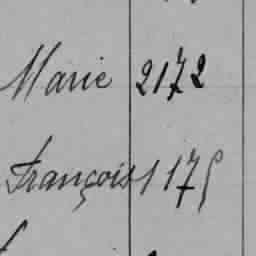 Marie 2172
François 1175